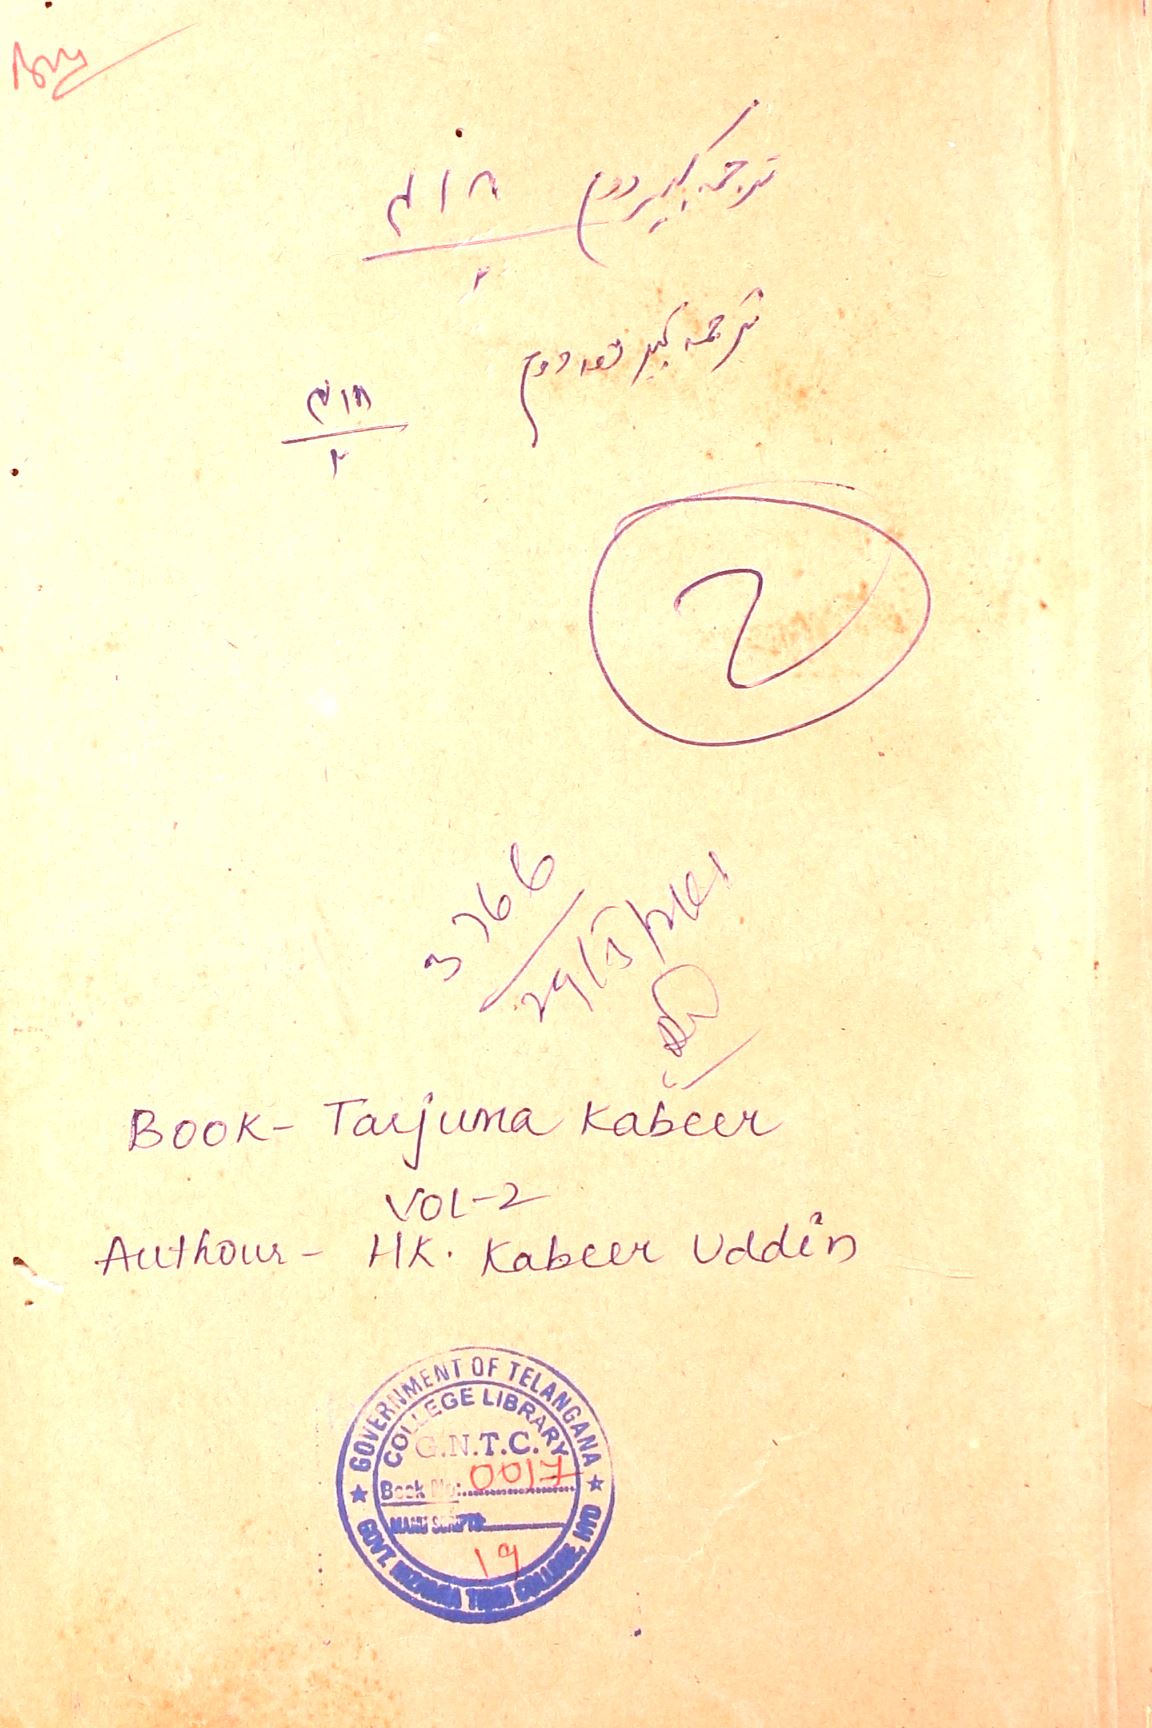 ترجمہ کبیر دوم
ترجمہ کبیر حصہ دوم
2
3766
Book- Tarjuma Kabeer
VOL-2
Authour- HK. Kabeer Uddin
GOVERNMENT OF TELANGANA
COLLEGE LIBRARY
G.N.T.C.
Book No: 0017
MANUSCRIPTS
19
GOVT. NIZAMIA TIBBI COLLEGE, HYD